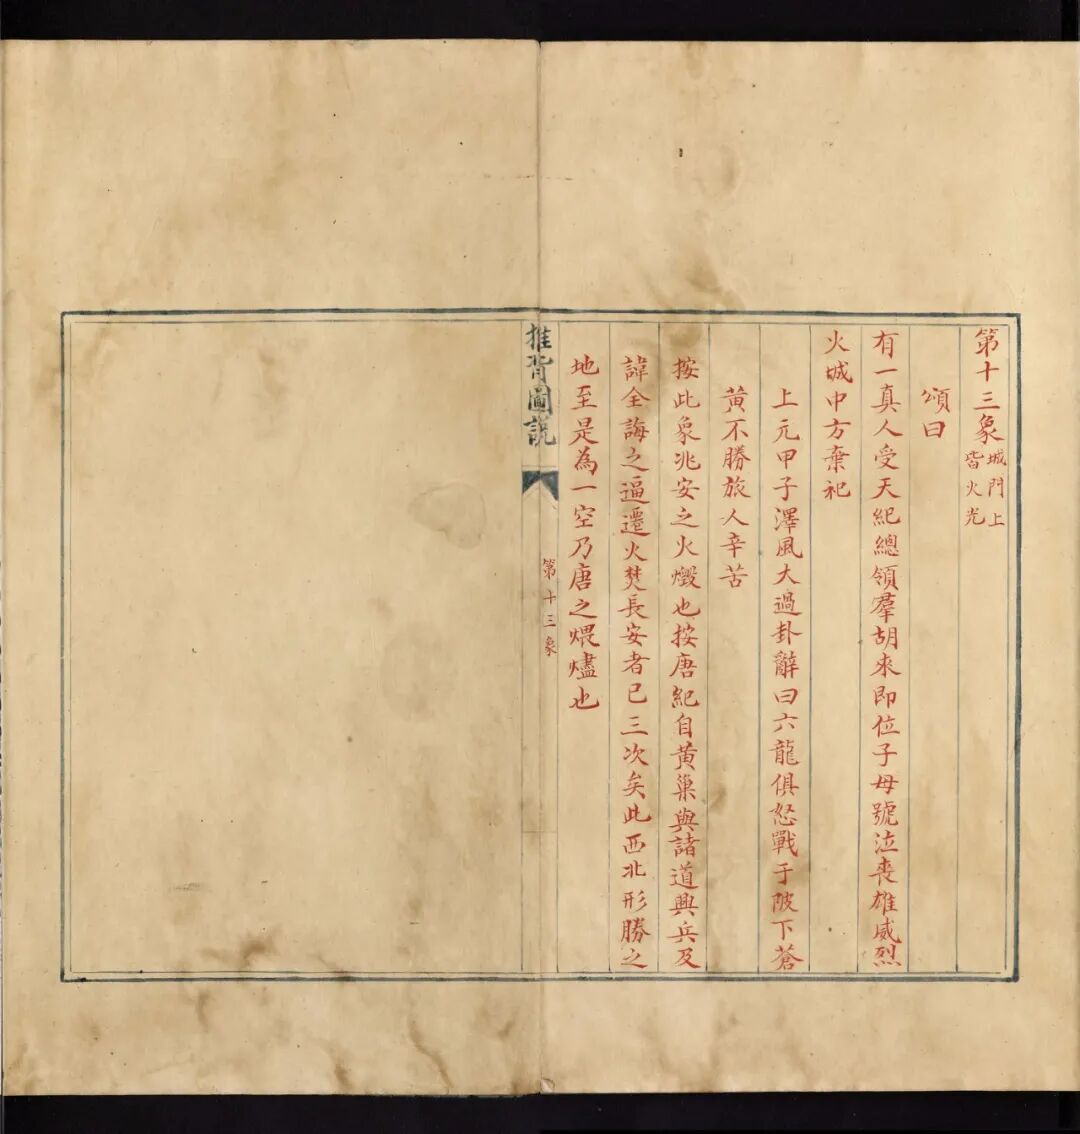 第十三象城門上皆火光
頌曰
有一真人受天紀總領羣胡來即位子母號泣喪雄威烈
火城中方棄祀
上元甲子澤風大過卦辭曰六龍俱怒戰于陂下蒼
黃不勝旅人辛苦
按此象兆安之火燬也按唐紀自黃巢與諸道興兵及
諱全誨之逼遷火焚長安者已三次矣此西北形勝之
地至是為一空乃唐之煨燼也
推背圖說
第十三象